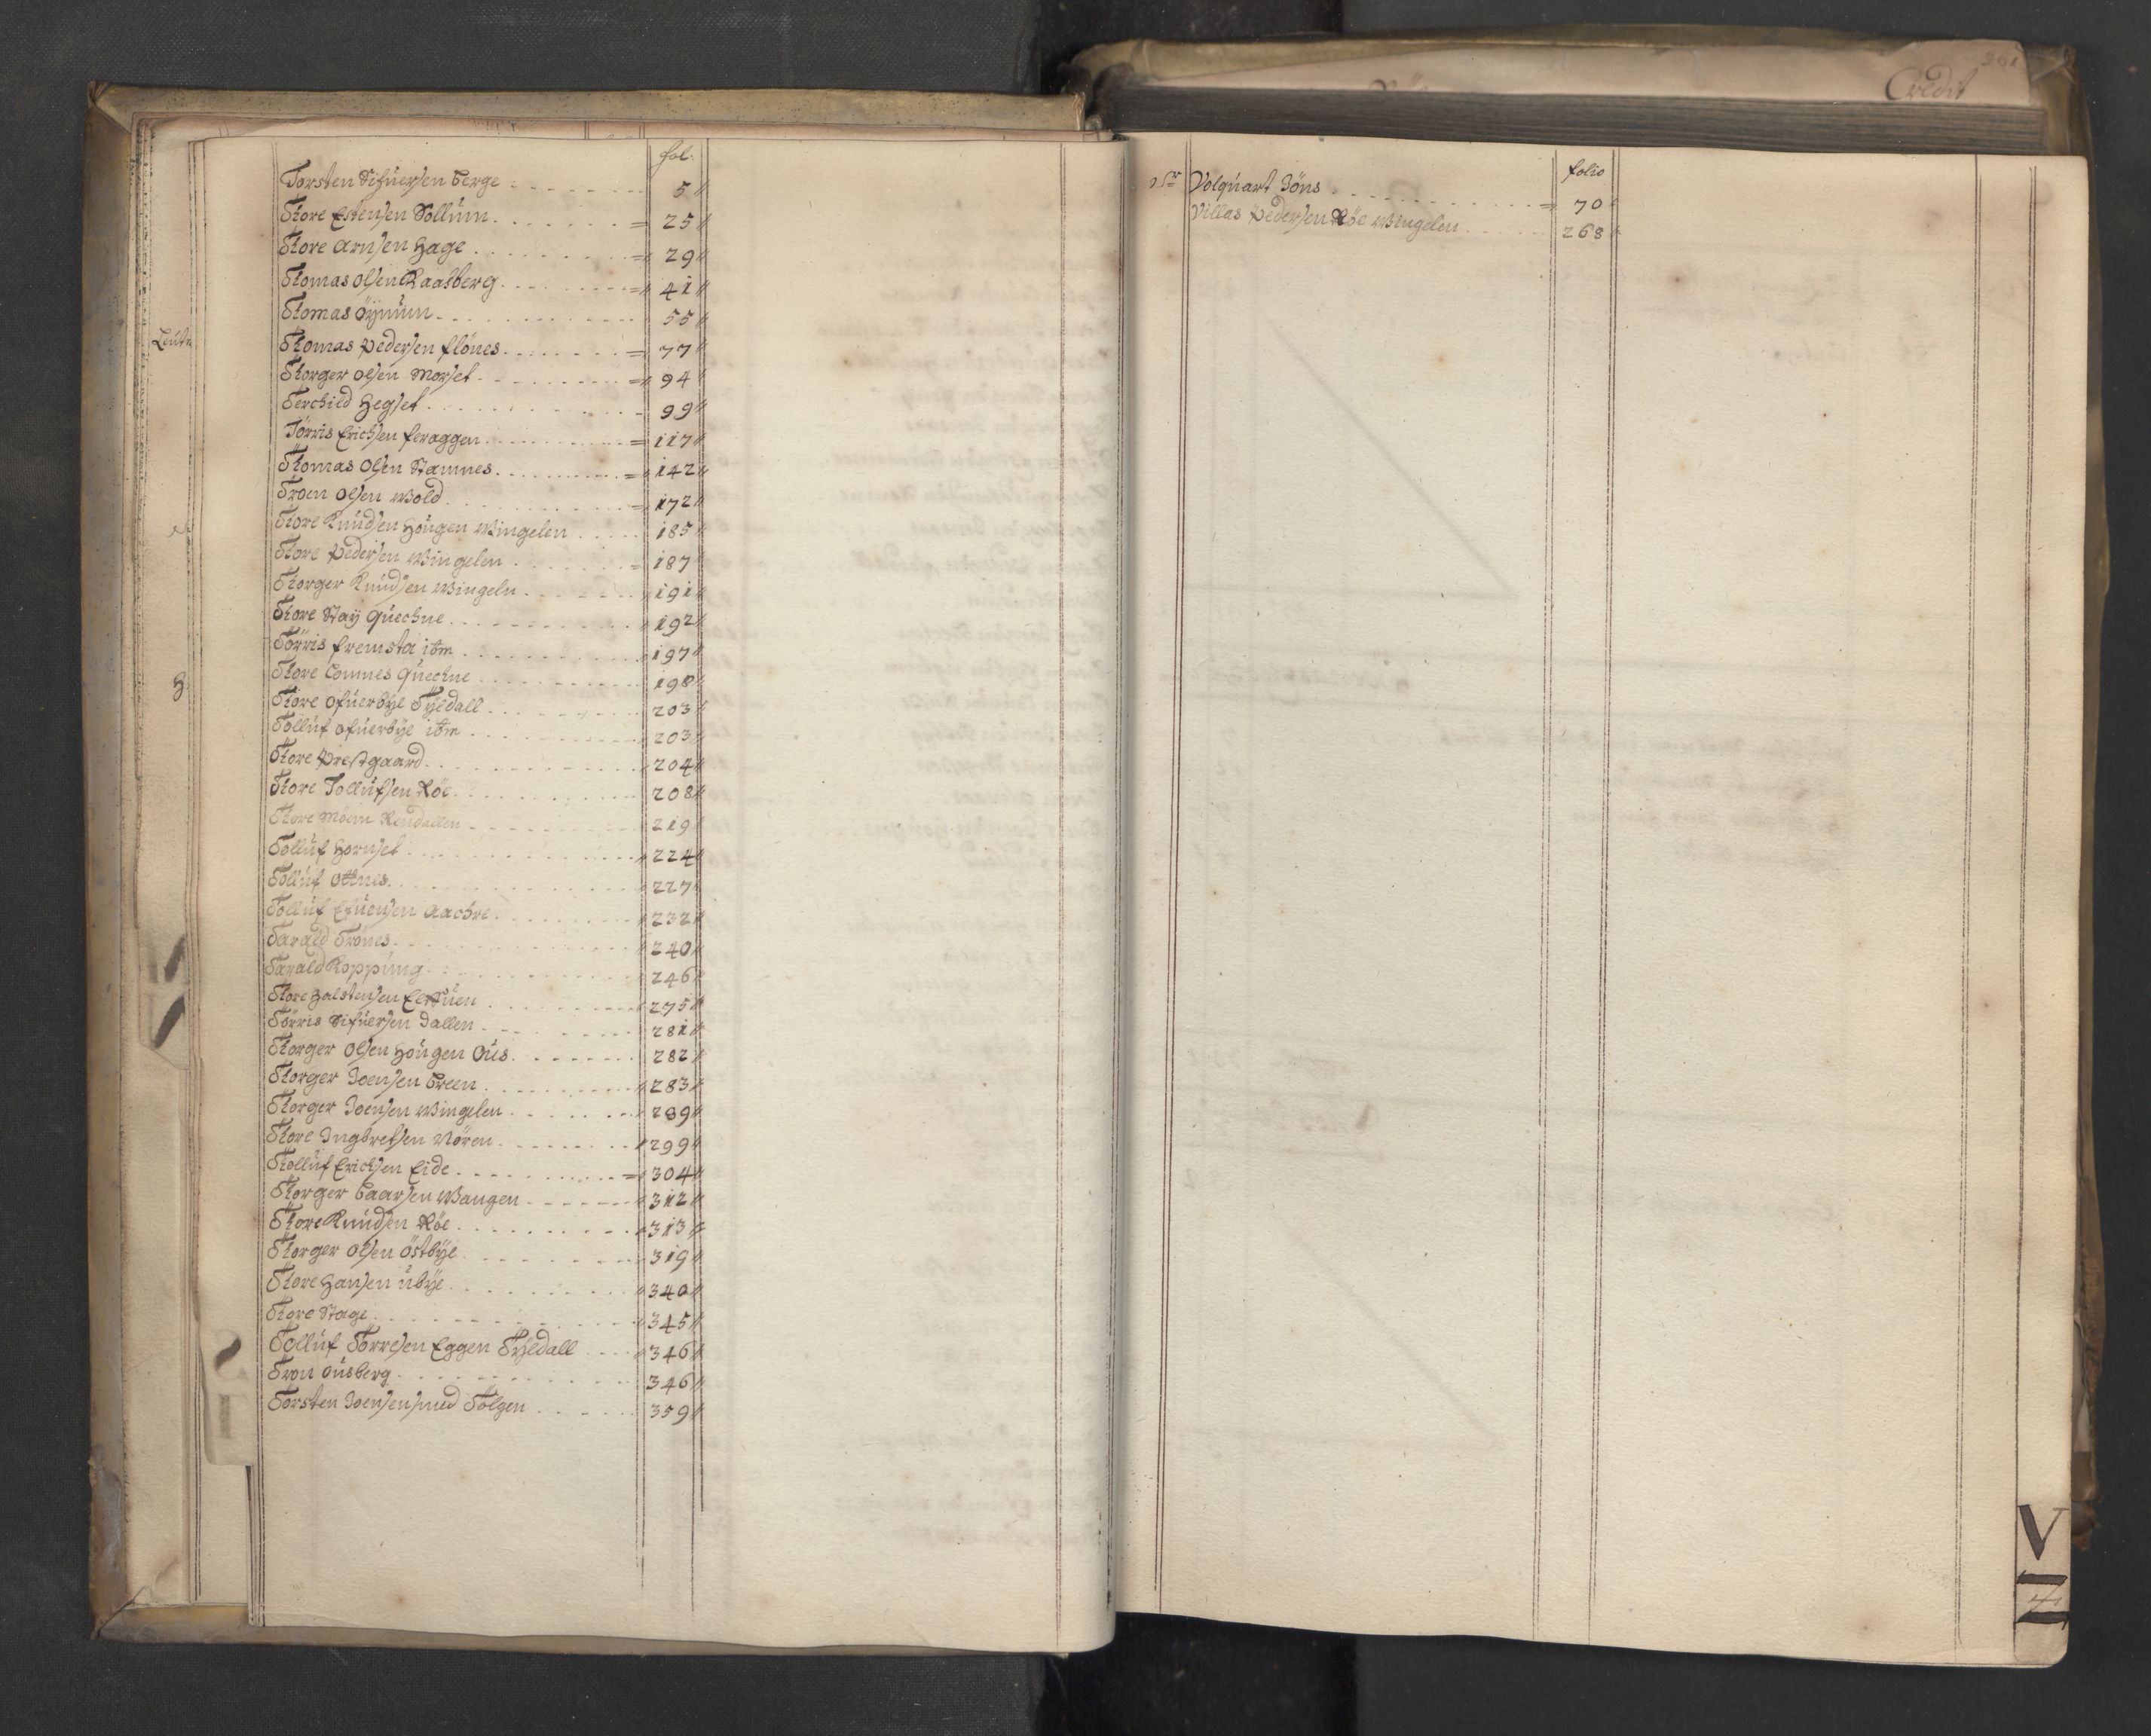 fol.
Torsten Sifuersen berge 5
Tore Estensen Sollum 25
Tore Arnsen Hage 29
Tomas Olsen Raasberg 41
Tomas Öynum 55
Tomas Pedersen flönes 77
Torger Olsen Morset 94
Terchild Hegset 99
Törris Erichsen feraggen 117
Tomas Olsen Stamnes 142
Troen Olsen Wold 172
Tore Knudsen Hougen Wingelen 185
Tore Pedersen Wingelen 187
Torger Knudsen Wingeln 191
Tore Stay Quechne 192
Törris fremsta itm 197
Tore Tomnes Quechne 198
Tore Ofuerbye Tyedall 203
Tolluf Ofuerbye itm 203
Tore Prestgaard 204
Tore Tollufsen Röe 208
Tore Möen Rendallen 219
Tolluf Hornset 224
Tolluf Ottnes 227
Tolluf Efuensen Aachre 232
Tarald Trönes 240
Tarald Koppung 246
Tore Halstensen 275
Törris Sifuersen Dallen 281
Torger Olsen Hougen Ous 282
Torger Joensen breen 283
Torger Joensen Wingelen 289
Tore Ingbretsen Nören 299
Tolluf Erichsen Eide 304
Torger baarsen Wangen 312
Tore Knudsen Röe 313
Torger Olsen Östbye 319
Tore Hansen übye 340
Tore Stage 345
Tolluf Torresen Eggen Tyedall 346
Tron Ousberg 346
Torsten Joensen smed Tolgen 359
Leutn
H
301
Credit
folio
Sr Volquart Jöns 70
Villas Pedersen Röe Wingelen 268
V